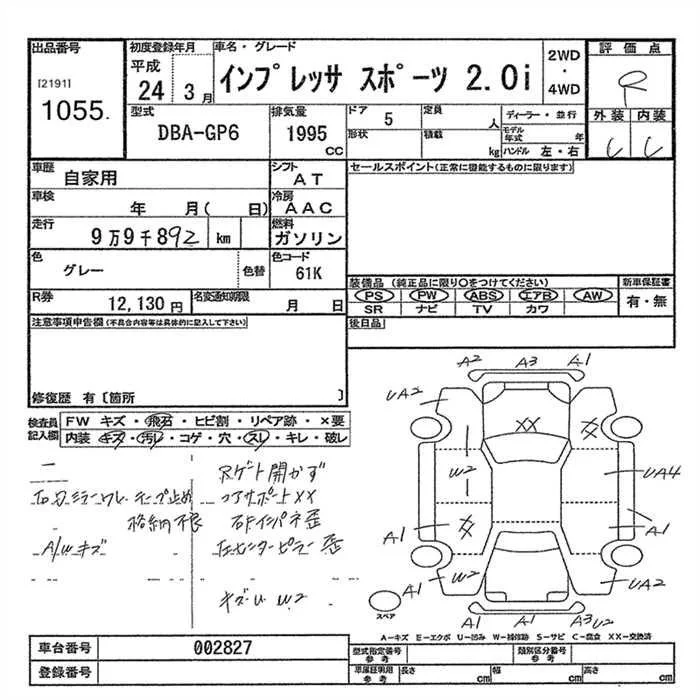 出品番号
[2191]
1055.
初度登録年月
平成
24 3月
車名・グレード
インプレッサ スポーツ 2.0i
2WD
・
4WD
評価点
R
外装 内装
C C
型式
DBA-GP6
排気量
1995
CC
ドア 5
形状
定員 人
積載 kg
ディーラー・並行
モデル年式 年
ハンドル 左・右
車歴
自家用
シフト
AT
セールスポイント(正常に機能するものに限ります)
車検
年 月( 日)
冷房
AAC
走行
9万9千892 km
燃料
ガソリン
色
グレー
色替
色コード
61K
装備品 (純正品に限り○をつけてください)
PS PW ABS エアB AW
SR ナビ TV カワ
新車保証書
有・無
R券
12,130円
名変通知期限
月 日
後日品
注意事項申告欄(不具合内容等は具体的に記入して下さい)
修復歴 有〔箇所 〕
検査員記入欄
FW キズ・飛石・ヒビ割・リペア跡・×要
内装 キズ・汚レ・コゲ・穴・スレ・キレ・破レ
Rゲート開かず
コアサポートXX
格納不良
A/Wキズ
右センターピラー歪
キズU W2
A2 A3 A1
UA2
XX
XX
W2
UA4
XX
A1
A1
W2
A1
UA2
A1 A1 A3 U2
スペア
A-キズ E-エクボ U-凹み W-補修跡 S-サビ C-腐食 XX-交換済
車台番号
002827
登録番号
型式指定番号
参考
類別区分番号
参考
車庫証明用
参考
長さ cm
幅 cm
高さ cm